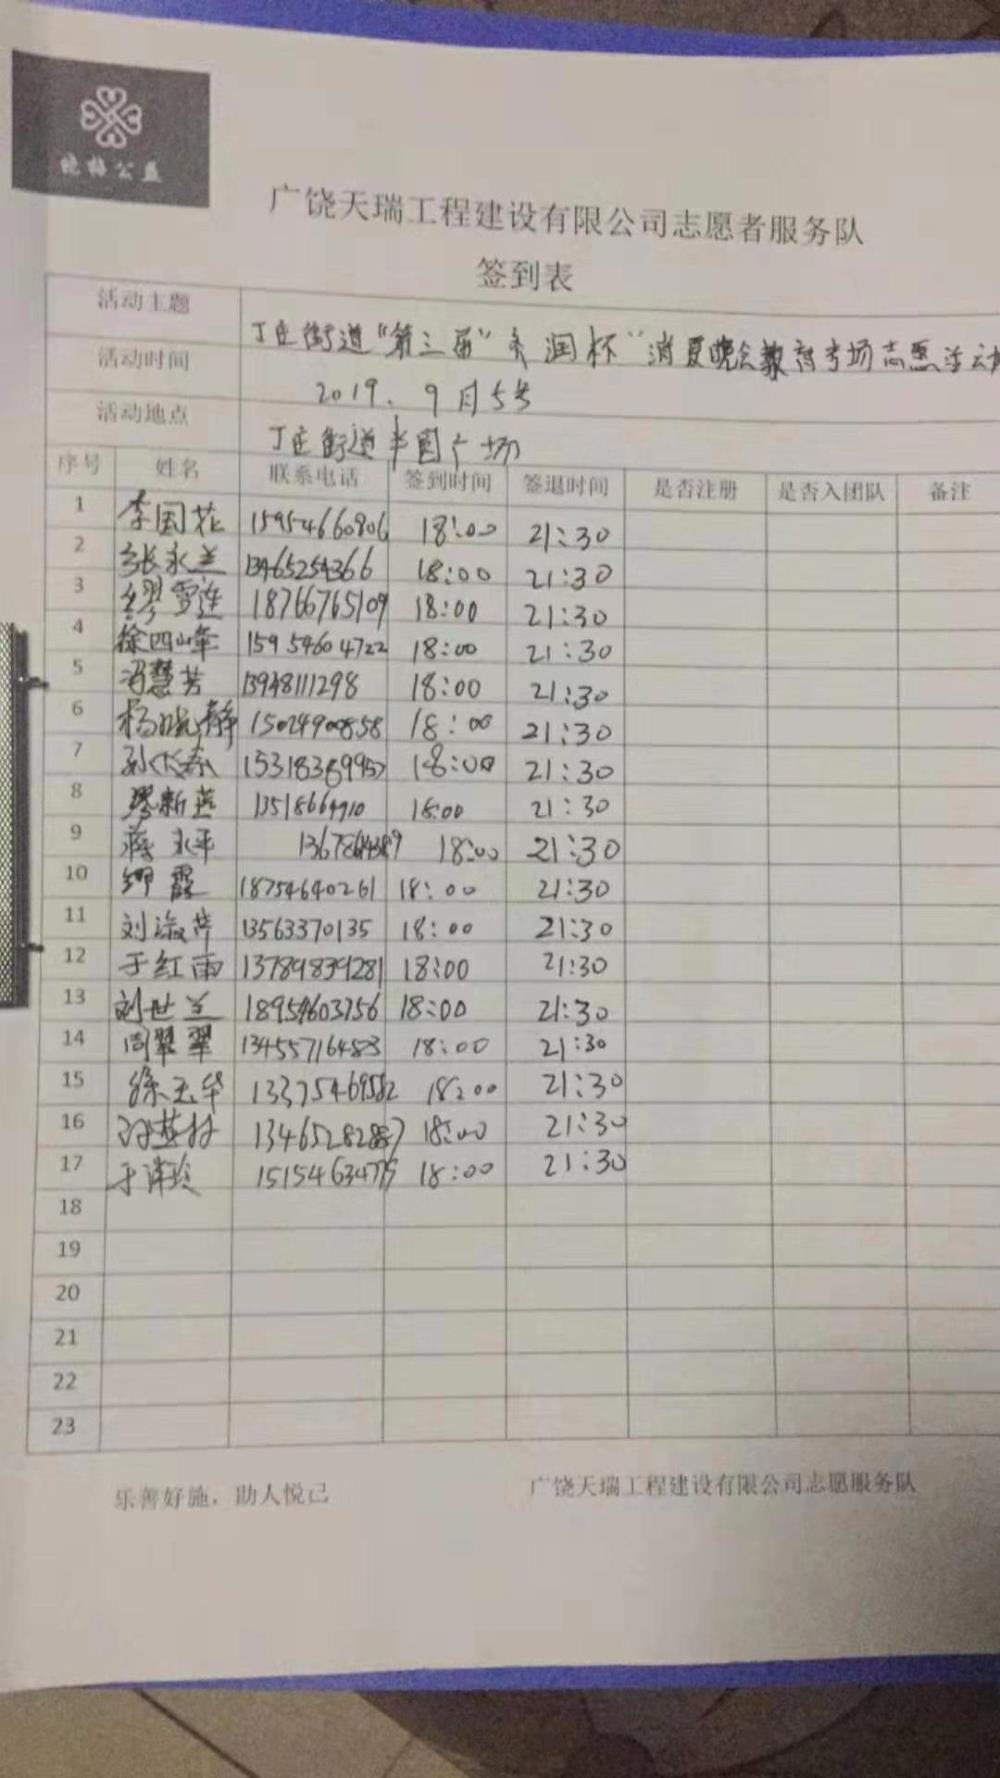 晓梅公益
广饶天瑞工程建设有限公司志愿者服务队
签到表
活动主题 丁庄街道"第三届"齐润杯"消夏晚会 专场志愿活动
活动时间 2019.9月5号
活动地点 丁庄街道半圆广场
序号 姓名 联系电话 签到时间 签退时间 是否注册 是否入团队 备注
1 李国花 15954660806 18:00 21:30
2 张永兰 13465254366 18:00 21:30
3 缪雪莲 18766765109 18:00 21:30
4 徐四峰 15954604722 18:00 21:30
5 冯慧芳 13948111298 18:00 21:30
6 杨晓静 15024900858 18:00 21:30
7 18:00 21:30
8 缪新莲 18:00 21:30
9 蒋永平 18:00 21:30
10 霞 18754640261 18:00 21:30
11 刘淑萍 13563370135 18:00 21:30
12 于红雨 13789839281 18:00 21:30
13 刘世兰 18954603756 18:00 21:30
14 周翠翠 13455716483 18:00 21:30
15 徐玉华 18:00 21:30
16 18:00 21:30
17 18:00 21:30
18
19
20
21
22
23
乐善好施，助人悦己 广饶天瑞工程建设有限公司志愿服务队